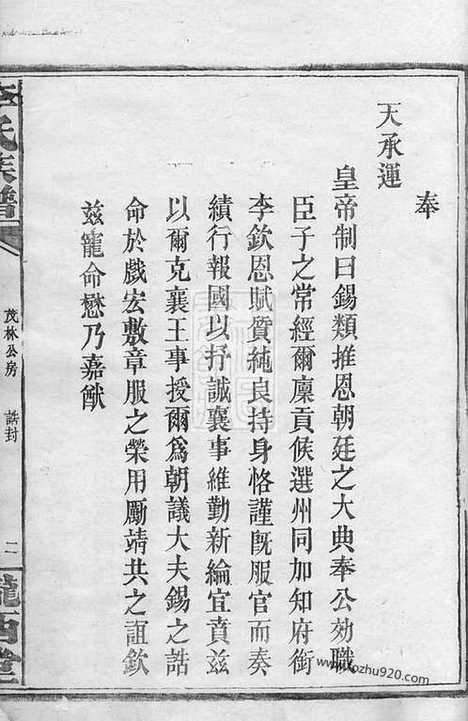 奉
天承運
皇帝制曰錫類推恩朝廷之大典奉公効職
臣子之常經爾廩貢候選州同加知府銜
李欽恩賦質純良持身恪謹旣服官而奏
績行報國以抒誠襄事維勤新綸宜賁兹
以爾克襄王事授爾爲朝議大夫錫之誥
命於戲宏敷章服之榮用勵靖共之誼欽
兹寵命懋乃嘉猷
李氏族譜
茂林公房
誥封
二
隴西堂
www.kozhu920.com